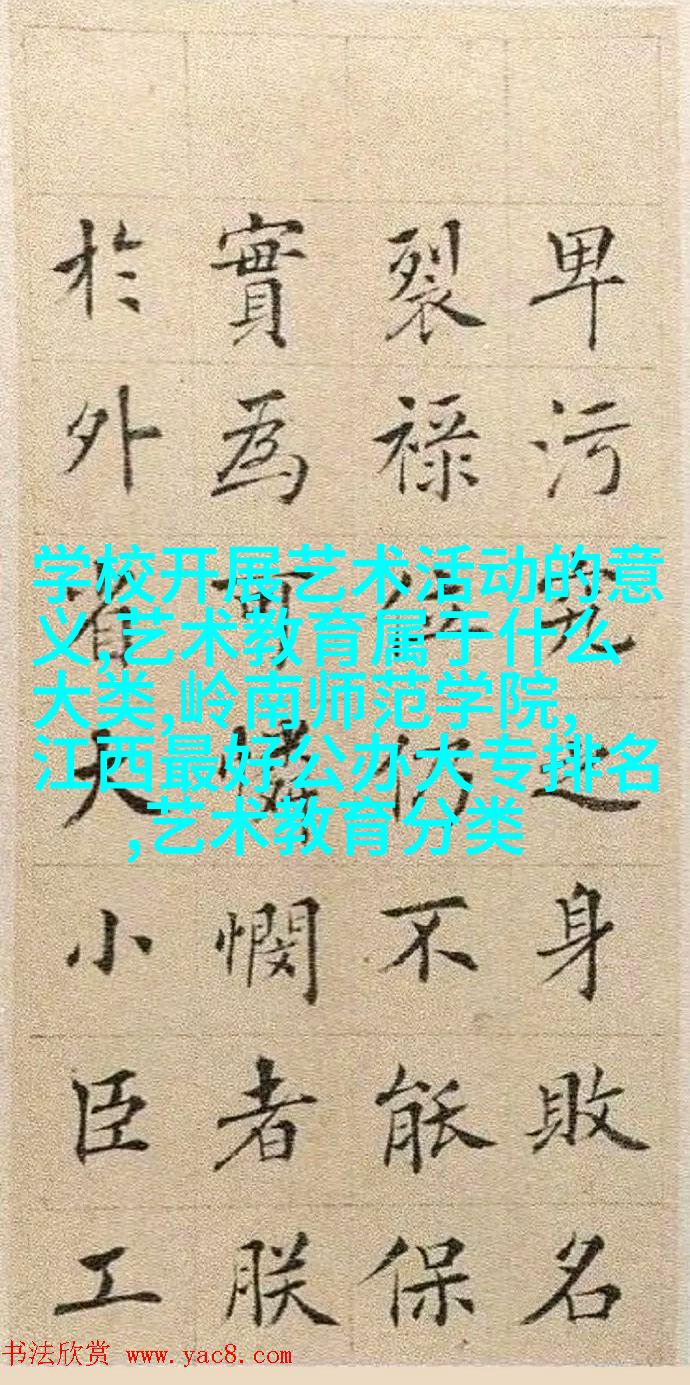 卑污究之身敗名
裂禄位仍不能保
實為可憐憫者朕
於外省大小臣工
学校开展艺术活动的意
义,艺术教育属于什么
大类,岭南师范学院,
江西最好公办大专排名
,艺术教育分类
书法欣赏 www.yac8.com